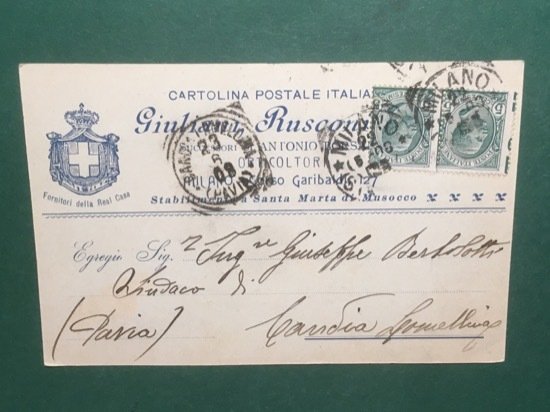 CARTOLINA POSTALE ITALIA
Giuliano Rusconi
ANTONIO
ORTICOLTORE
MILANO Corso Garibaldi 127
Stabilimento a Santa Marta di Musocco
Fornitori della Real Casa
MILANO
Egregio Sig. Ing. Giuseppe Bertolotti
Sindaco di
(Pavia) Candia Lomellina